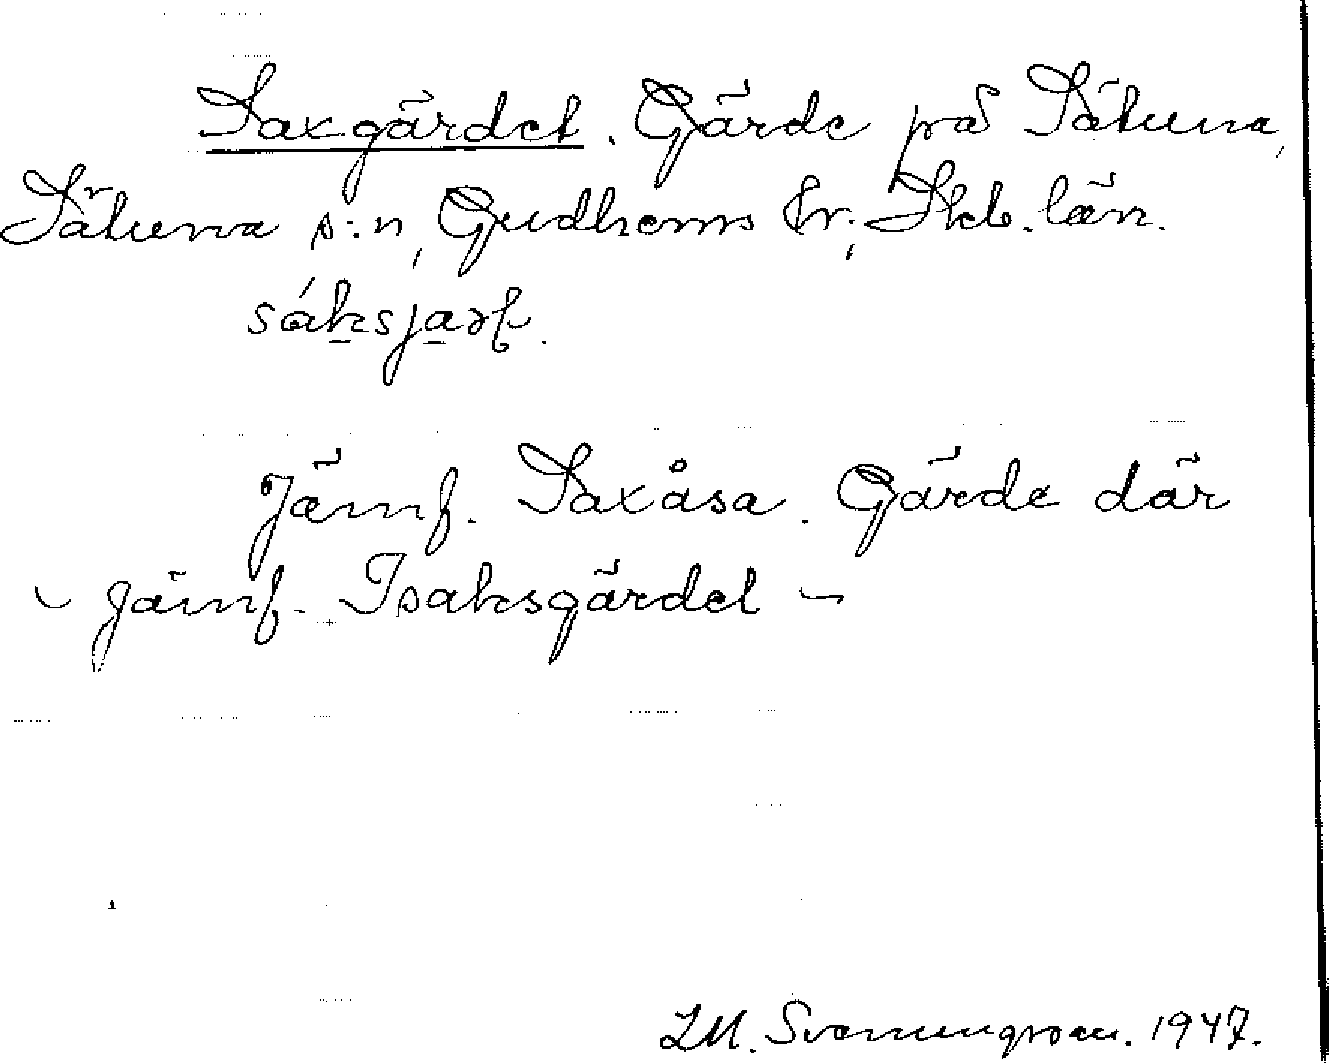 Saxgärdet. Gärde på Sätuna,
Sätuna s:n, Gudhems hr; Skb. län.
sáksjaṛt.
Jämf. Saxåsa. Gärde där
– jämf. Isaksgärdet –
1947.